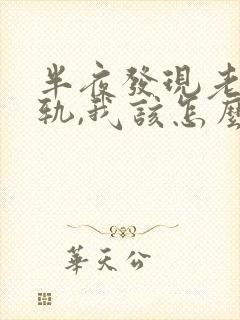 半夜發現老
軌,我該怎麼
華天公